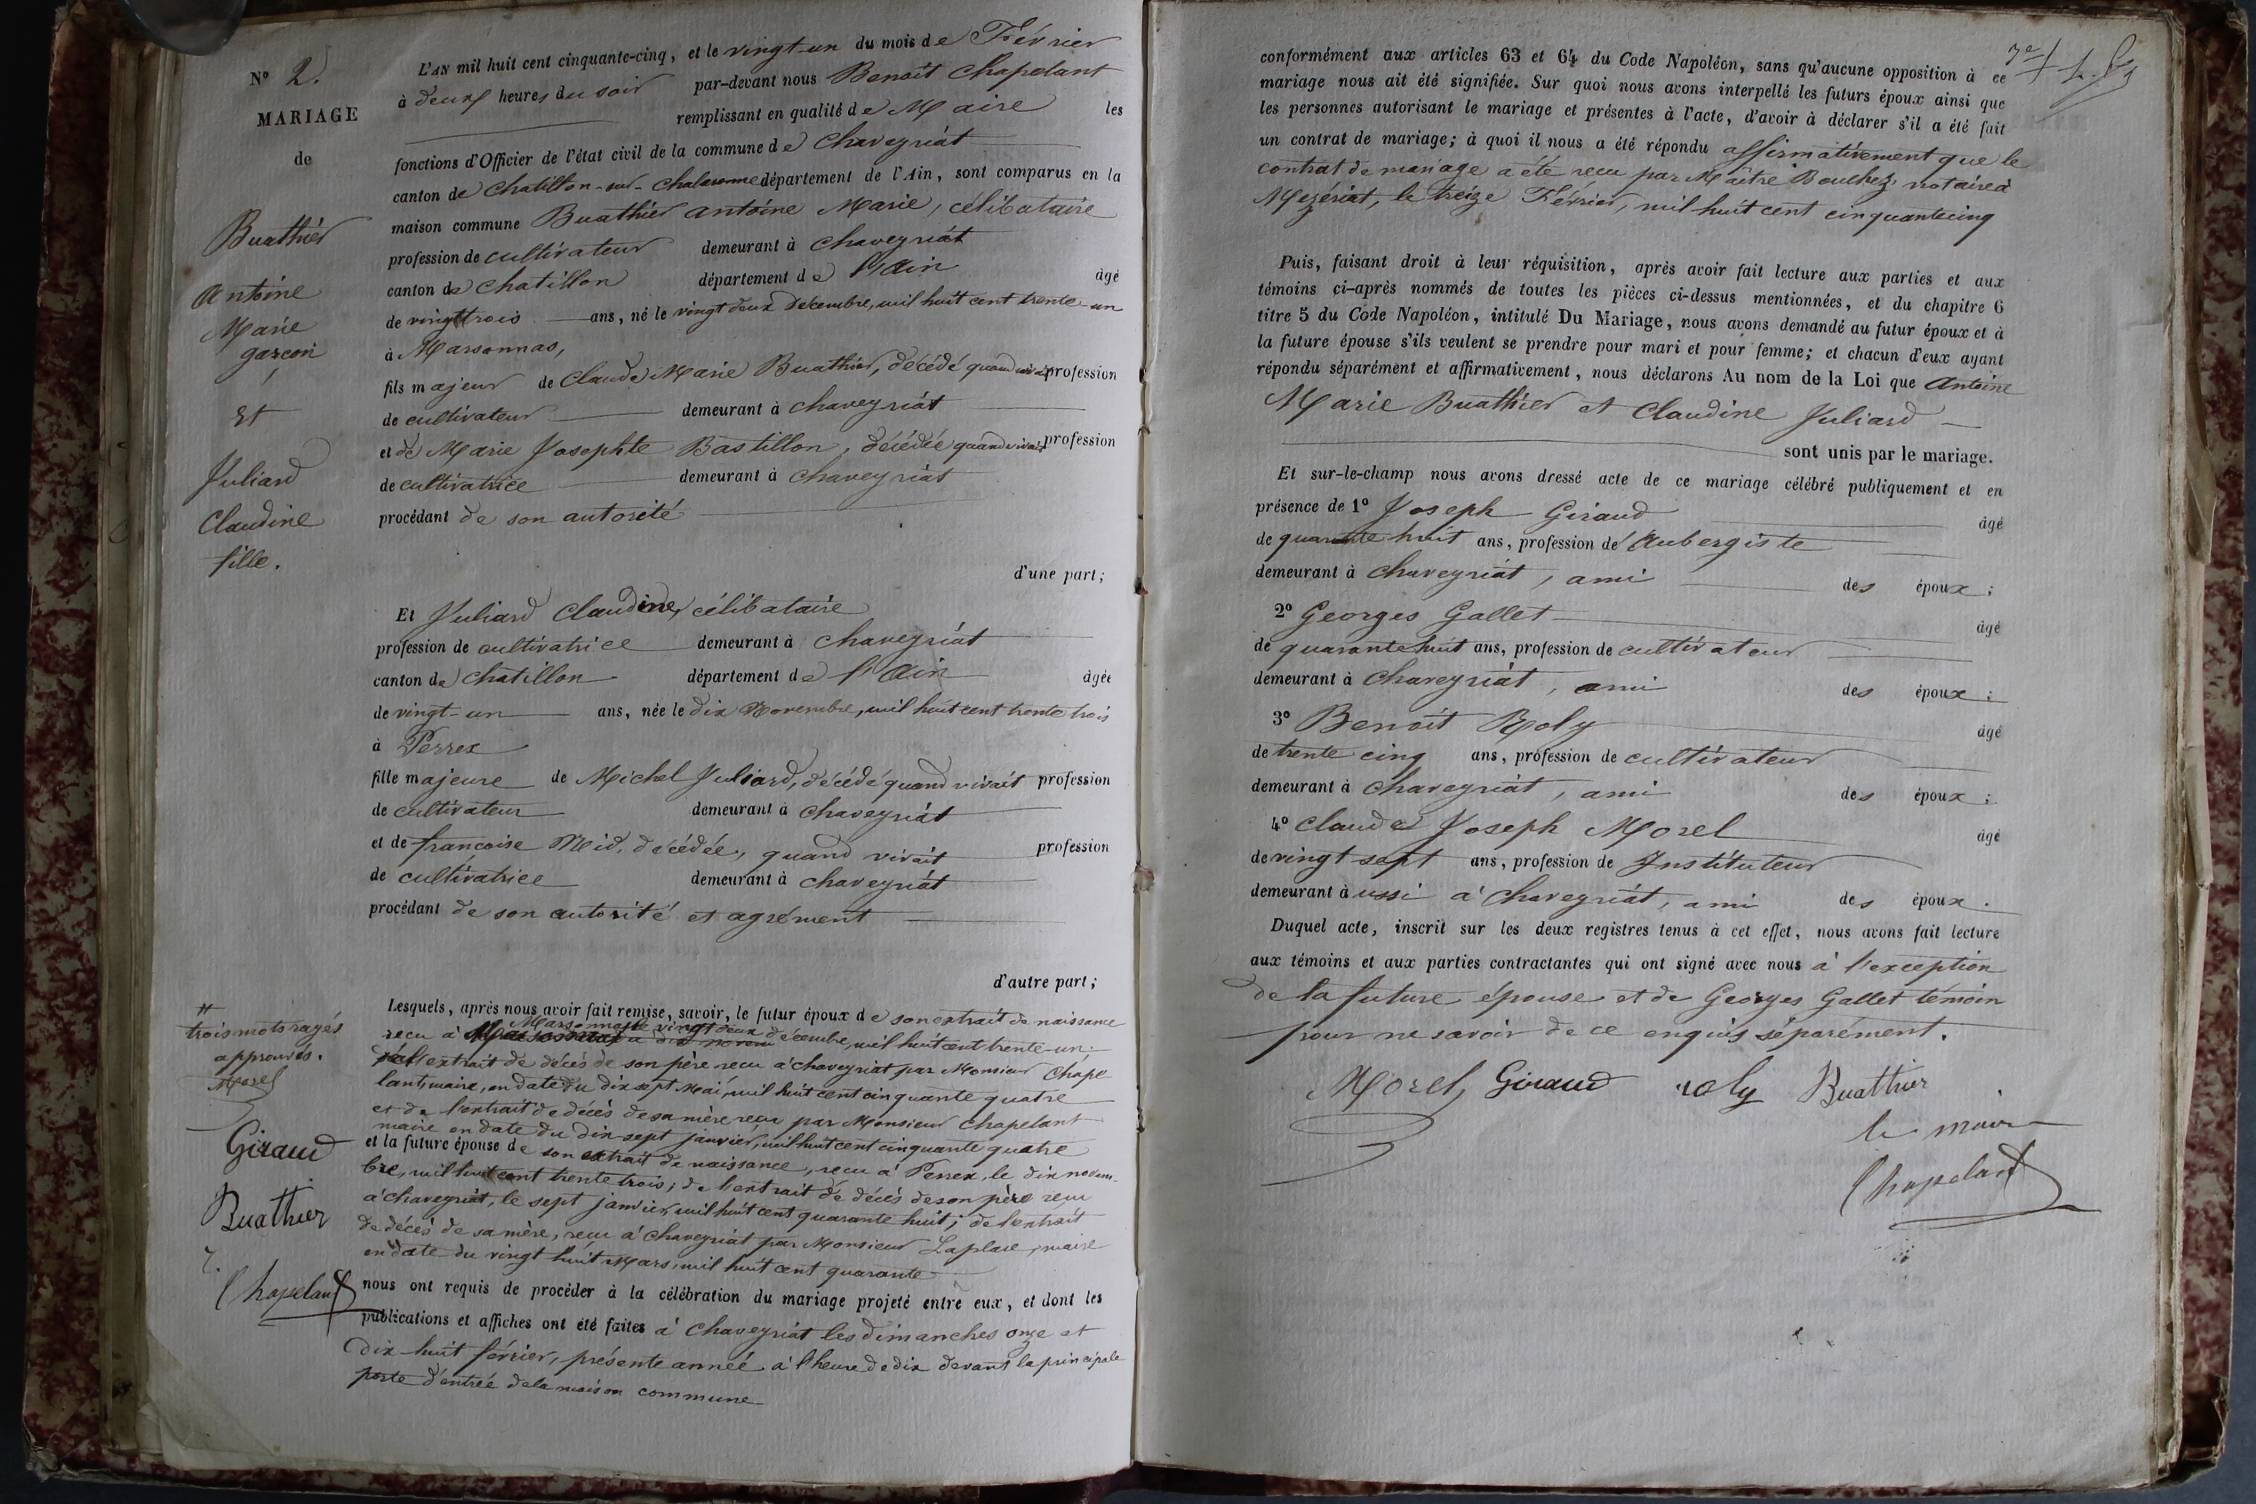 N° 2.
MARIAGE
de
Buathier
Antoine
Marie
garçon
Et
Juliard
Claudine
fille.
L'AN mil huit cent cinquante-cinq, et le vingt-un du mois de Février
à deux heures du soir par-devant nous Benoit Chapelant
remplissant en qualité de Maire les
fonctions d'Officier de l'état civil de la commune de Chaveyriat
canton de Chatillon-sur-Chalaronne département de l'Ain, sont comparus en la
maison commune Buathier Antoine Marie, célibataire
profession de cultivateur demeurant à Chaveyriat
canton de Chatillon département de l'Ain âgé
de vingt trois ans, né le vingt deux Décembre, mil huit cent trente-un
à Marsonnas,
fils majeur de Claude Marie Buathier, décédé quand vivait profession
de cultivateur demeurant à Chaveyriat
et de Marie Josephte Bastillon, décédée quand vivait profession
de cultivatrice demeurant à Chaveyriat
procédant de son autorité
d'une part;
Et Juliard Claudine, célibataire
profession de cultivatrice demeurant à Chaveyriat
canton de Chatillon département de l'Ain âgée
de vingt-un ans, née le dix Novembre, mil huit cent trente trois
à Perrex
fille majeure de Michel Juliard, décédé quand vivait profession
de cultivateur demeurant à Chaveyriat
et de françoise décédée, quand vivait profession
de cultivatrice demeurant à Chaveyriat
procédant de son autorité et agrément
d'autre part;
Lesquels, après nous avoir fait remise, savoir, le futur époux de son extrait de naissance
reçu à Marsonnas le vingt deux décembre, mil huit cent trente-un;
de l'extrait de décès de son père reçu à Chaveyriat par Monsieur Chape
lant, maire, en date du dix sept Mai, mil huit cent cinquante quatre
et de l'extrait de décès de sa mère reçu par Monsieur Chapelant
maire en date du dix-sept janvier, mil huit cent cinquante quatre
et la future épouse de son extrait de naissance, reçu à Perrex, le dix novem-
bre, mil huit cent trente trois; de l'extrait de décès de son père reçu
à Chaveyriat, le sept janvier, mil huit cent quarante huit; de l'extrait
de décès de sa mère, reçu à Chaveyriat par Monsieur Laplace, maire
en date du vingt huit Mars, mil huit cent quarante
nous ont requis de procéder à la célébration du mariage projeté entre eux, et dont les
publications et affiches ont été faites à Chaveyriat les dimanches onze et
dix-huit février, présente année à l'heure de dix devant la principale
porte d'entrée de la maison commune
trois mots rayés
approuvés.
Morel
Giraud
Buathier
Chapelant
conformément aux articles 63 et 64 du Code Napoléon, sans qu'aucune opposition à ce
mariage nous ait été signifiée. Sur quoi nous avons interpellé les futurs époux ainsi que
les personnes autorisant le mariage et présentes à l'acte, d'avoir à déclarer s'il a été fait
un contrat de mariage; à quoi il nous a été répondu affirmativement que le
contrat de mariage a été reçu par Maître Bouchez, notaire à
Mezériat, le treize Février, mil huit cent cinquante cinq
Puis, faisant droit à leur réquisition, après avoir fait lecture aux parties et aux
témoins ci-après nommés de toutes les pièces ci-dessus mentionnées, et du chapitre 6
titre 5 du Code Napoléon, intitulé Du Mariage, nous avons demandé au futur époux et à
la future épouse s'ils veulent se prendre pour mari et pour femme; et chacun d'eux ayant
répondu séparément et affirmativement, nous déclarons Au nom de la Loi que Antoine
Marie Buathier et Claudine Juliard
sont unis par le mariage.
Et sur-le-champ nous avons dressé acte de ce mariage célébré publiquement et en
présence de 1° Joseph Giraud âgé
de quarante huit ans, profession de Aubergiste
demeurant à Chaveyriat, ami des époux;
2° Georges Gallet âgé
de quarante huit ans, profession de cultivateur
demeurant à Chaveyriat, ami des époux;
3° Benoit Roly âgé
de trente cinq ans, profession de cultivateur
demeurant à Chaveyriat, ami des époux;
4° Claude Joseph Morel âgé
de vingt sept ans, profession de Instituteur
demeurant aussi à Chaveyriat, ami des époux.
Duquel acte, inscrit sur les deux registres tenus à cet effet, nous avons fait lecture
aux témoins et aux parties contractantes qui ont signé avec nous à l'exception
de la future épouse et de Georges Gallet témoin
pour ne savoir de ce enquis séparément.
Morel Giraud roly Buathier
le maire
Chapelant